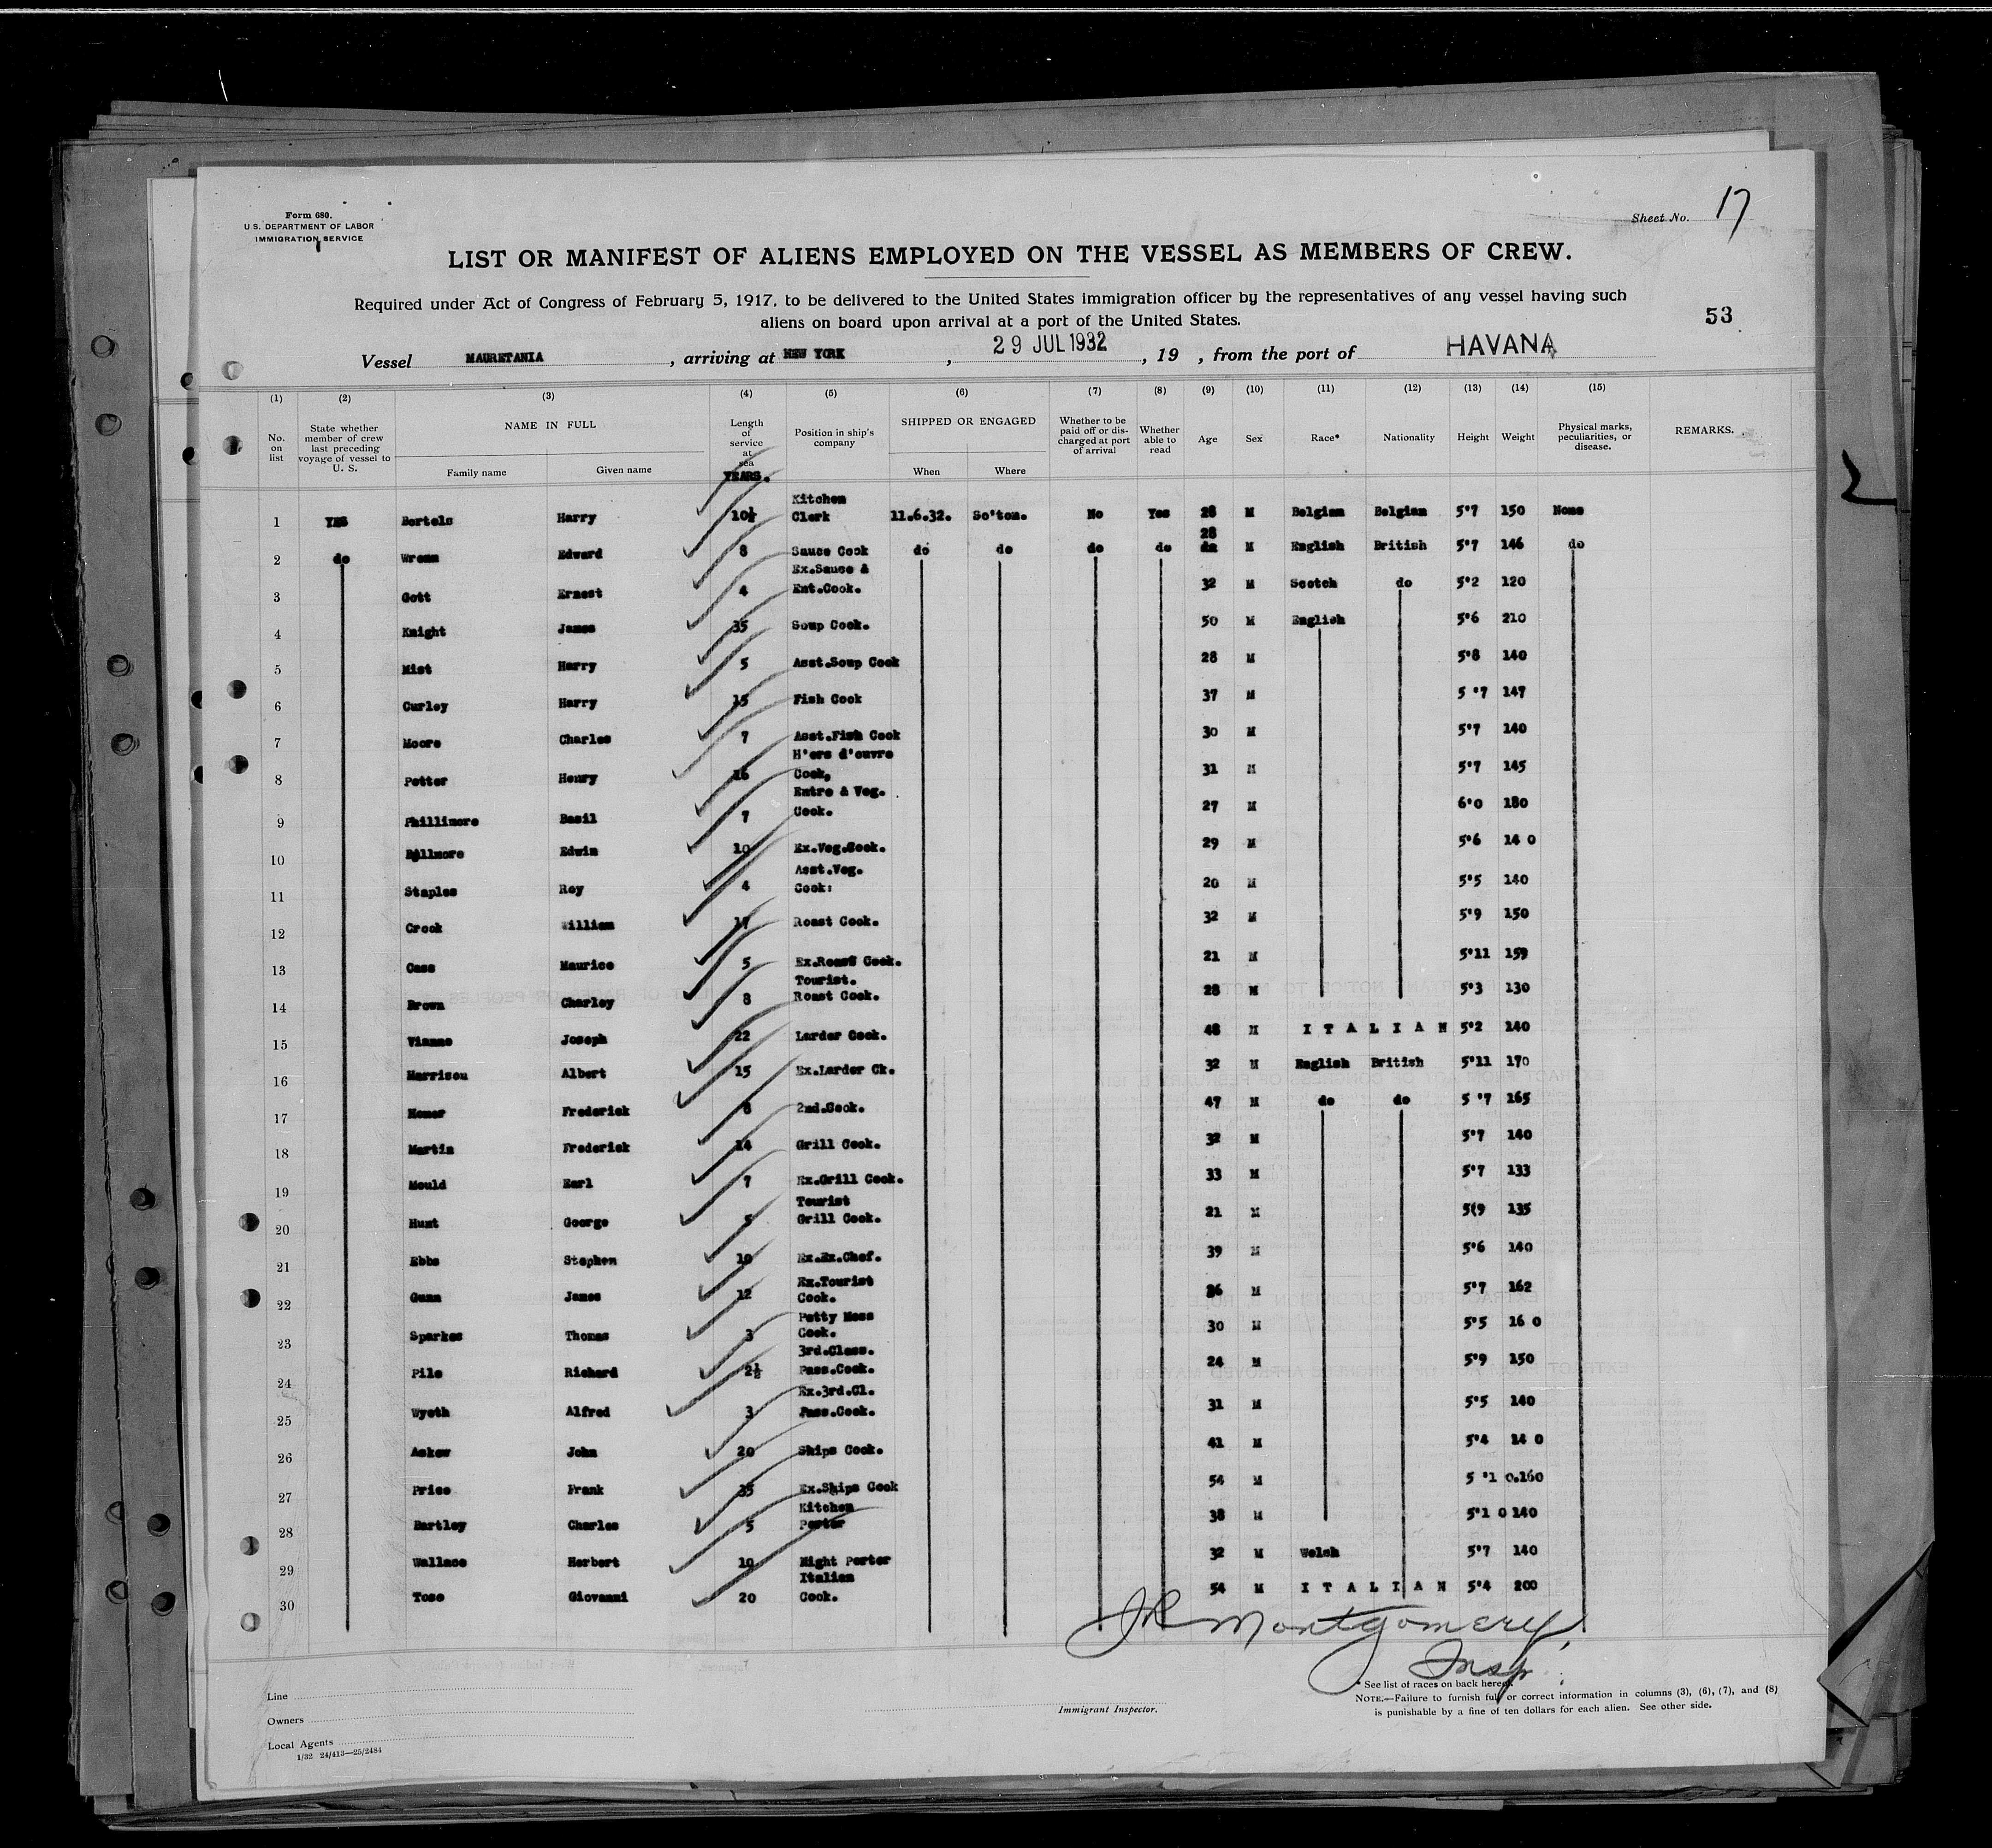 Form 680.
U.S. DEPARTMENT OF LABOR
IMMIGRATION SERVICE
Sheet No. 17
LIST OR MANIFEST OF ALIENS EMPLOYED ON THE VESSEL AS MEMBERS OF CREW.
Required under Act of Congress of February 5, 1917, to be delivered to the United States immigration officer by the representatives of any vessel having such
aliens on board upon arrival at a port of the United States.
53
Vessel MAURETANIA, arriving at NEW YORK, 29 JUL 1932, 19 , from the port of HAVANA
(1) (2) (3) (4) (5) (6) (7) (8) (9) (10) (11) (12) (13) (14) (15)
No. on list
State whether member of crew last preceding voyage of vessel to U. S.
NAME IN FULL
Family name Given name
Length of service at sea
YEARS.
Position in ship's company
SHIPPED OR ENGAGED
When Where
Whether to be paid off or discharged at port of arrival
Whether able to read
Age Sex Race* Nationality Height Weight
Physical marks, peculiarities, or disease.
REMARKS.
1 YES Bertels Harry 10½ Kitchen Clerk 11.6.32. So'ton. No Yes 28 M Belgian Belgian 5'7 150 None
2 do Wrenn Edward 8 Sauce Cook do do do do 28 M English British 5'7 146 do
3 Gott Ernest 4 Ex.Sauce & Ent.Cook. 32 M Scotch do 5'2 120
4 Knight James 35 Soup Cook. 50 M English 5'6 210
5 Mist Harry 5 Asst.Soup Cook 28 M 5'8 140
6 Curley Harry 15 Fish Cook 37 M 5 '7 147
7 Moore Charles 7 Asst.Fish Cook 30 M 5'7 140
8 Potter Henry 16 H'ers d'ouvre Cook, 31 M 5'7 145
9 Phillimore Basil 7 Entre & Veg. Cook. 27 M 6'0 180
10 Edwin 10 Ex.Veg.Cook. 29 M 5'6 14 0
11 Staples Roy 4 Asst.Veg. Cook: 20 M 5'5 140
12 Crook William 17 Roast Cook. 32 M 5'9 150
13 Cass Maurice 5 Ex.Roast Cook. 21 M 5'11 159
14 Brown Charley 8 Tourist. Roast Cook. 28 M 5'3 130
15 Vianne Joseph 22 Larder Cook. 48 M ITALIAN 5'2 140
16 Harrison Albert 15 Ex.Larder Ck. 32 M English British 5'11 170
17 Frederick 8 2nd.Cook. 47 M do do 5 '7 165
18 Martin Frederick 14 Grill Cook. 32 M 5'7 140
19 Mould Earl 7 Ex.Grill Cook. 33 M 5'7 133
20 Hunt George 5 Tourist Grill Cook. 21 M 5(9 135
21 Ebbs Stephen 10 Ex.Ex.Chef. 39 M 5'6 140
22 Gunn James 12 Ex.Tourist Cook. M 5'7 162
23 Sparkes Thomas 3 Petty Mess Cook. 30 M 5'5 16 0
24 Pile Richard 2½ 3rd.Class. Pass.Cook. 24 M 5'9 150
25 Wyeth Alfred 3 Ex.3rd.Cl. Pass.Cook. 31 M 5'5 140
26 Askew John 20 Ships Cook. 41 M 5'4 14 0
27 Price Frank 35 Ex.Ships Cook 54 M 5 '1 0.160
28 Bartley Charles 5 Kitchen Porter 38 M 5'1 0 140
29 Wallace Herbert 10 Night Porter 32 M Welsh 5'7 140
30 Tose Giovanni 20 Italian Cook. 54 M ITALIAN 5'4 200
JR Montgomery,
Insp.
Line
Owners
Local Agents
1/32 24/413—25/2484
Immigrant Inspector.
* See list of races on back hereof.
NOTE.—Failure to furnish full or correct information in columns (3), (6), (7), and (8)
is punishable by a fine of ten dollars for each alien. See other side.